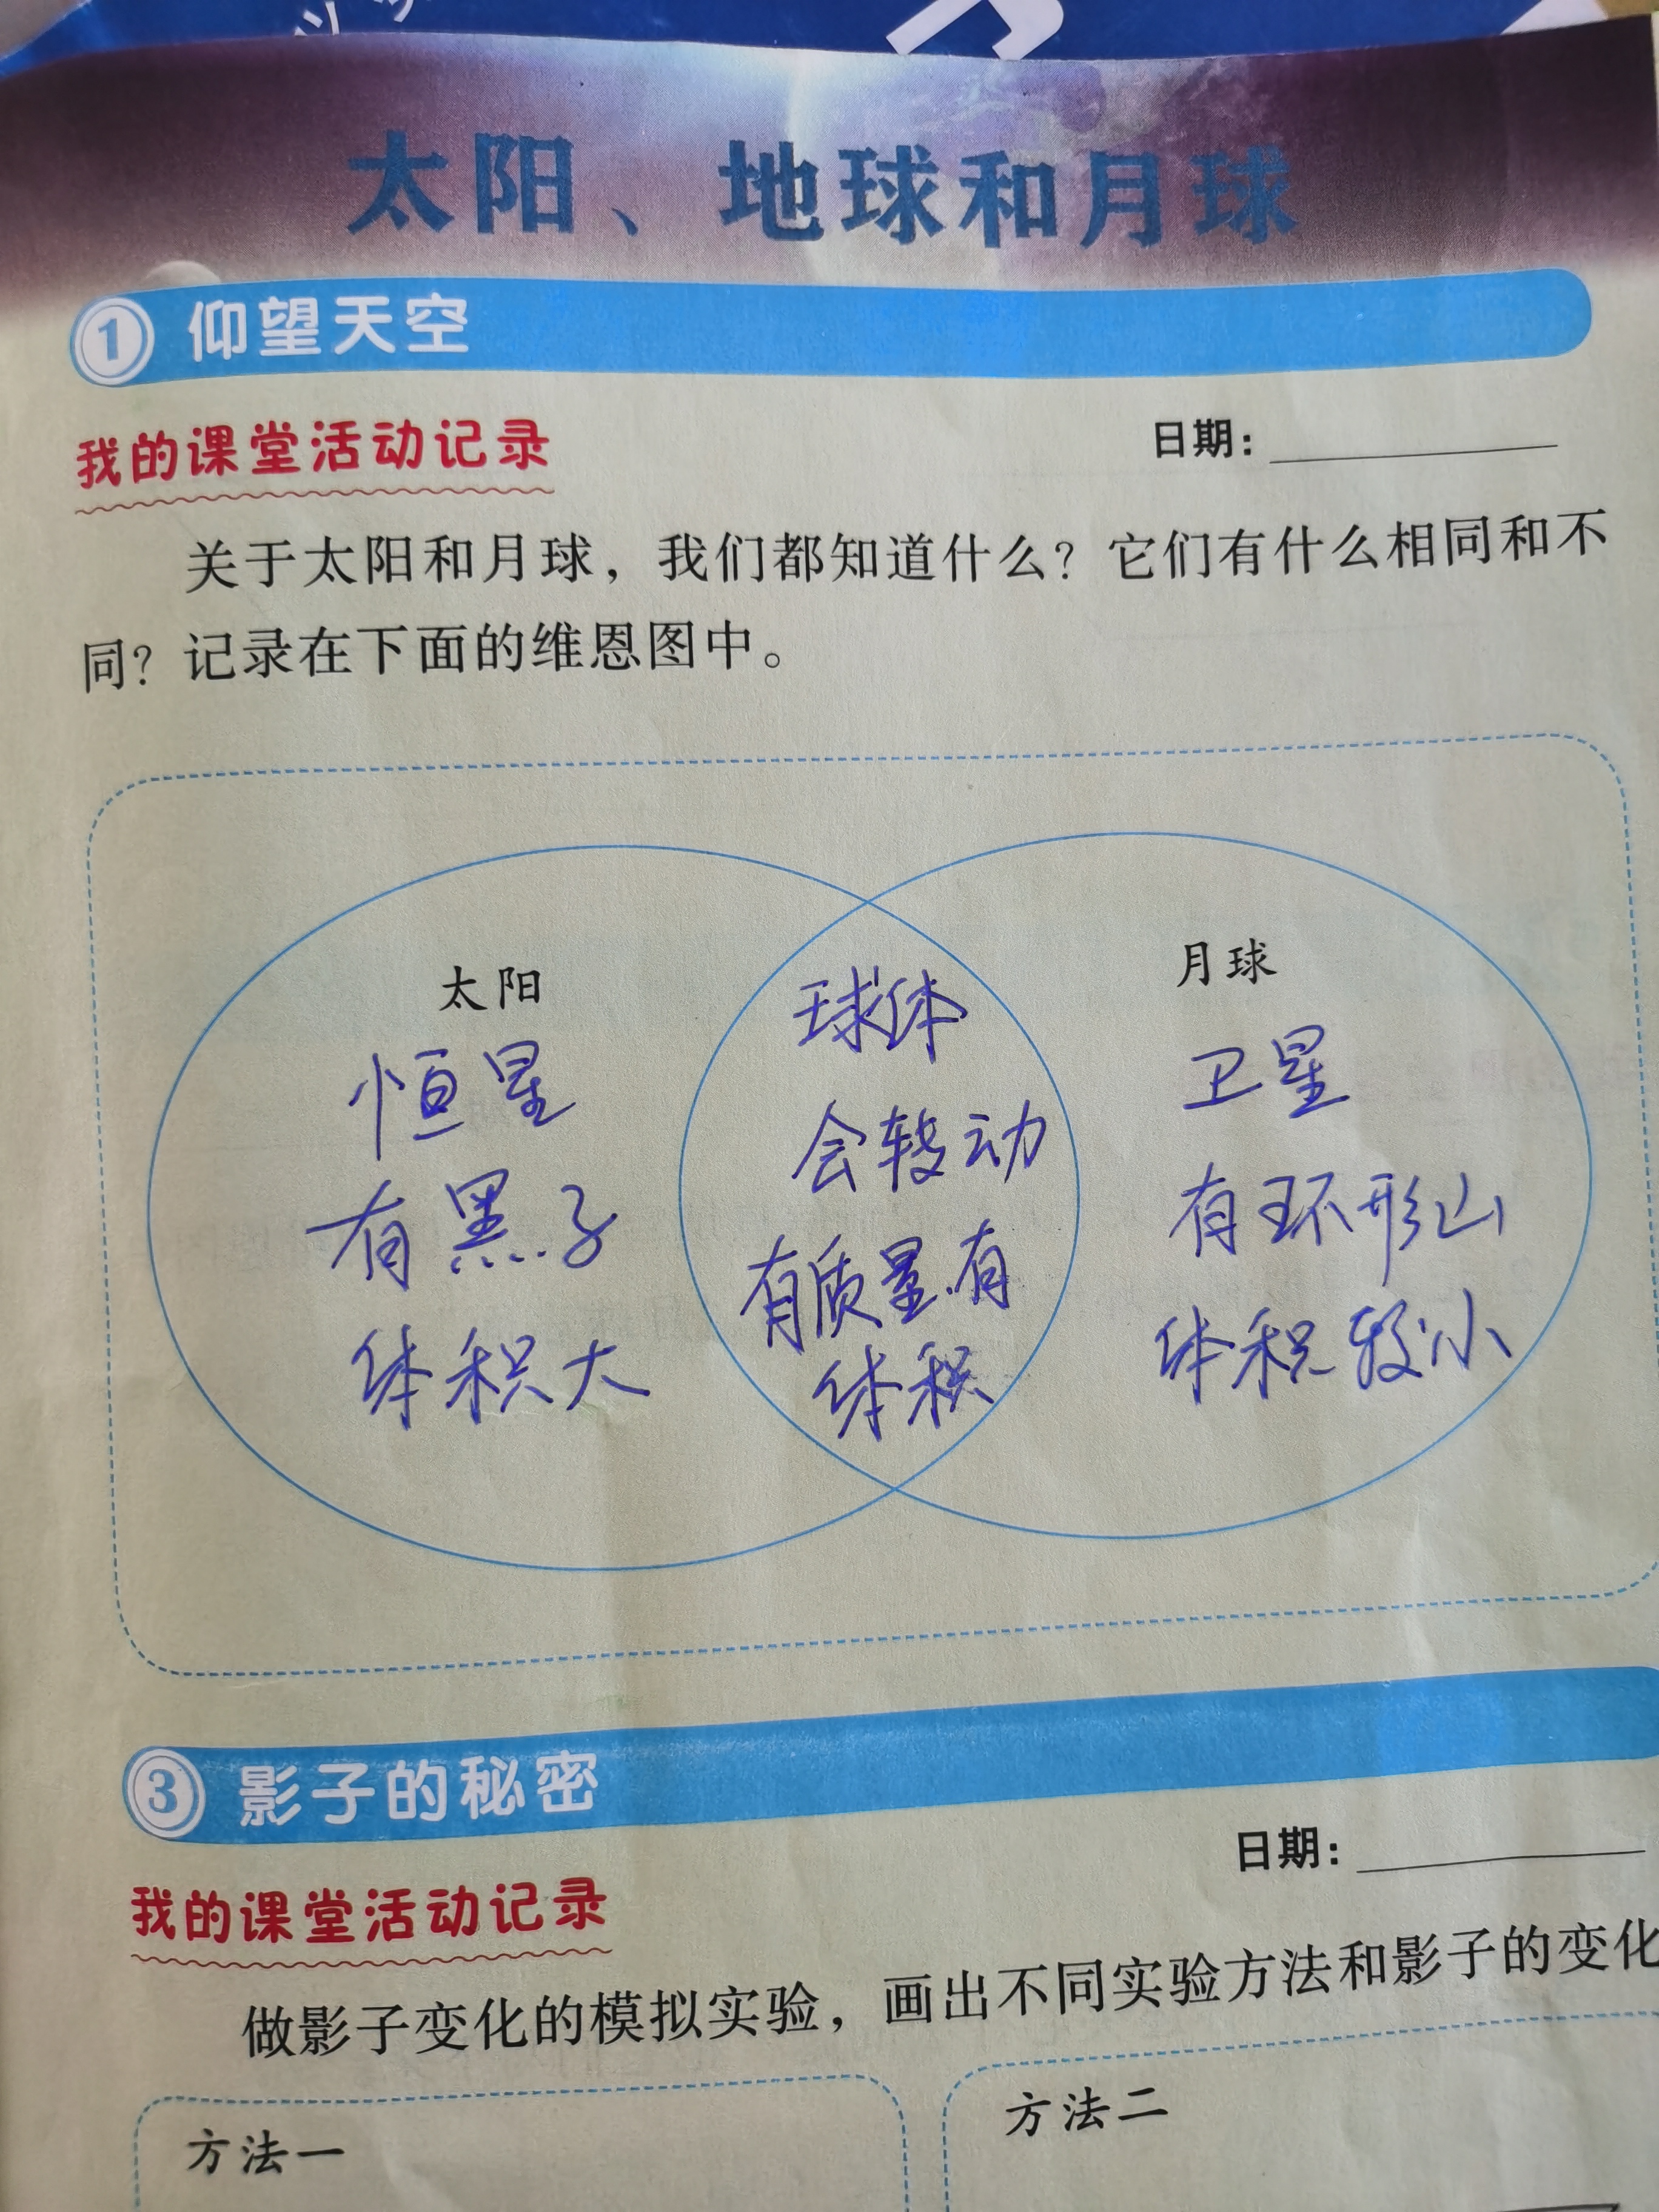 太阳、地球和月球
1 仰望天空
我的课堂活动记录
日期：
关于太阳和月球，我们都知道什么？它们有什么相同和不
同？记录在下面的维恩图中。
太阳
恒星
有黑子
体积大
球体
会转动
有质量.有
体积
月球
卫星
有环形山
体积较小
3 影子的秘密
日期：
我的课堂活动记录
做影子变化的模拟实验，画出不同实验方法和影子的变化
方法一
方法二